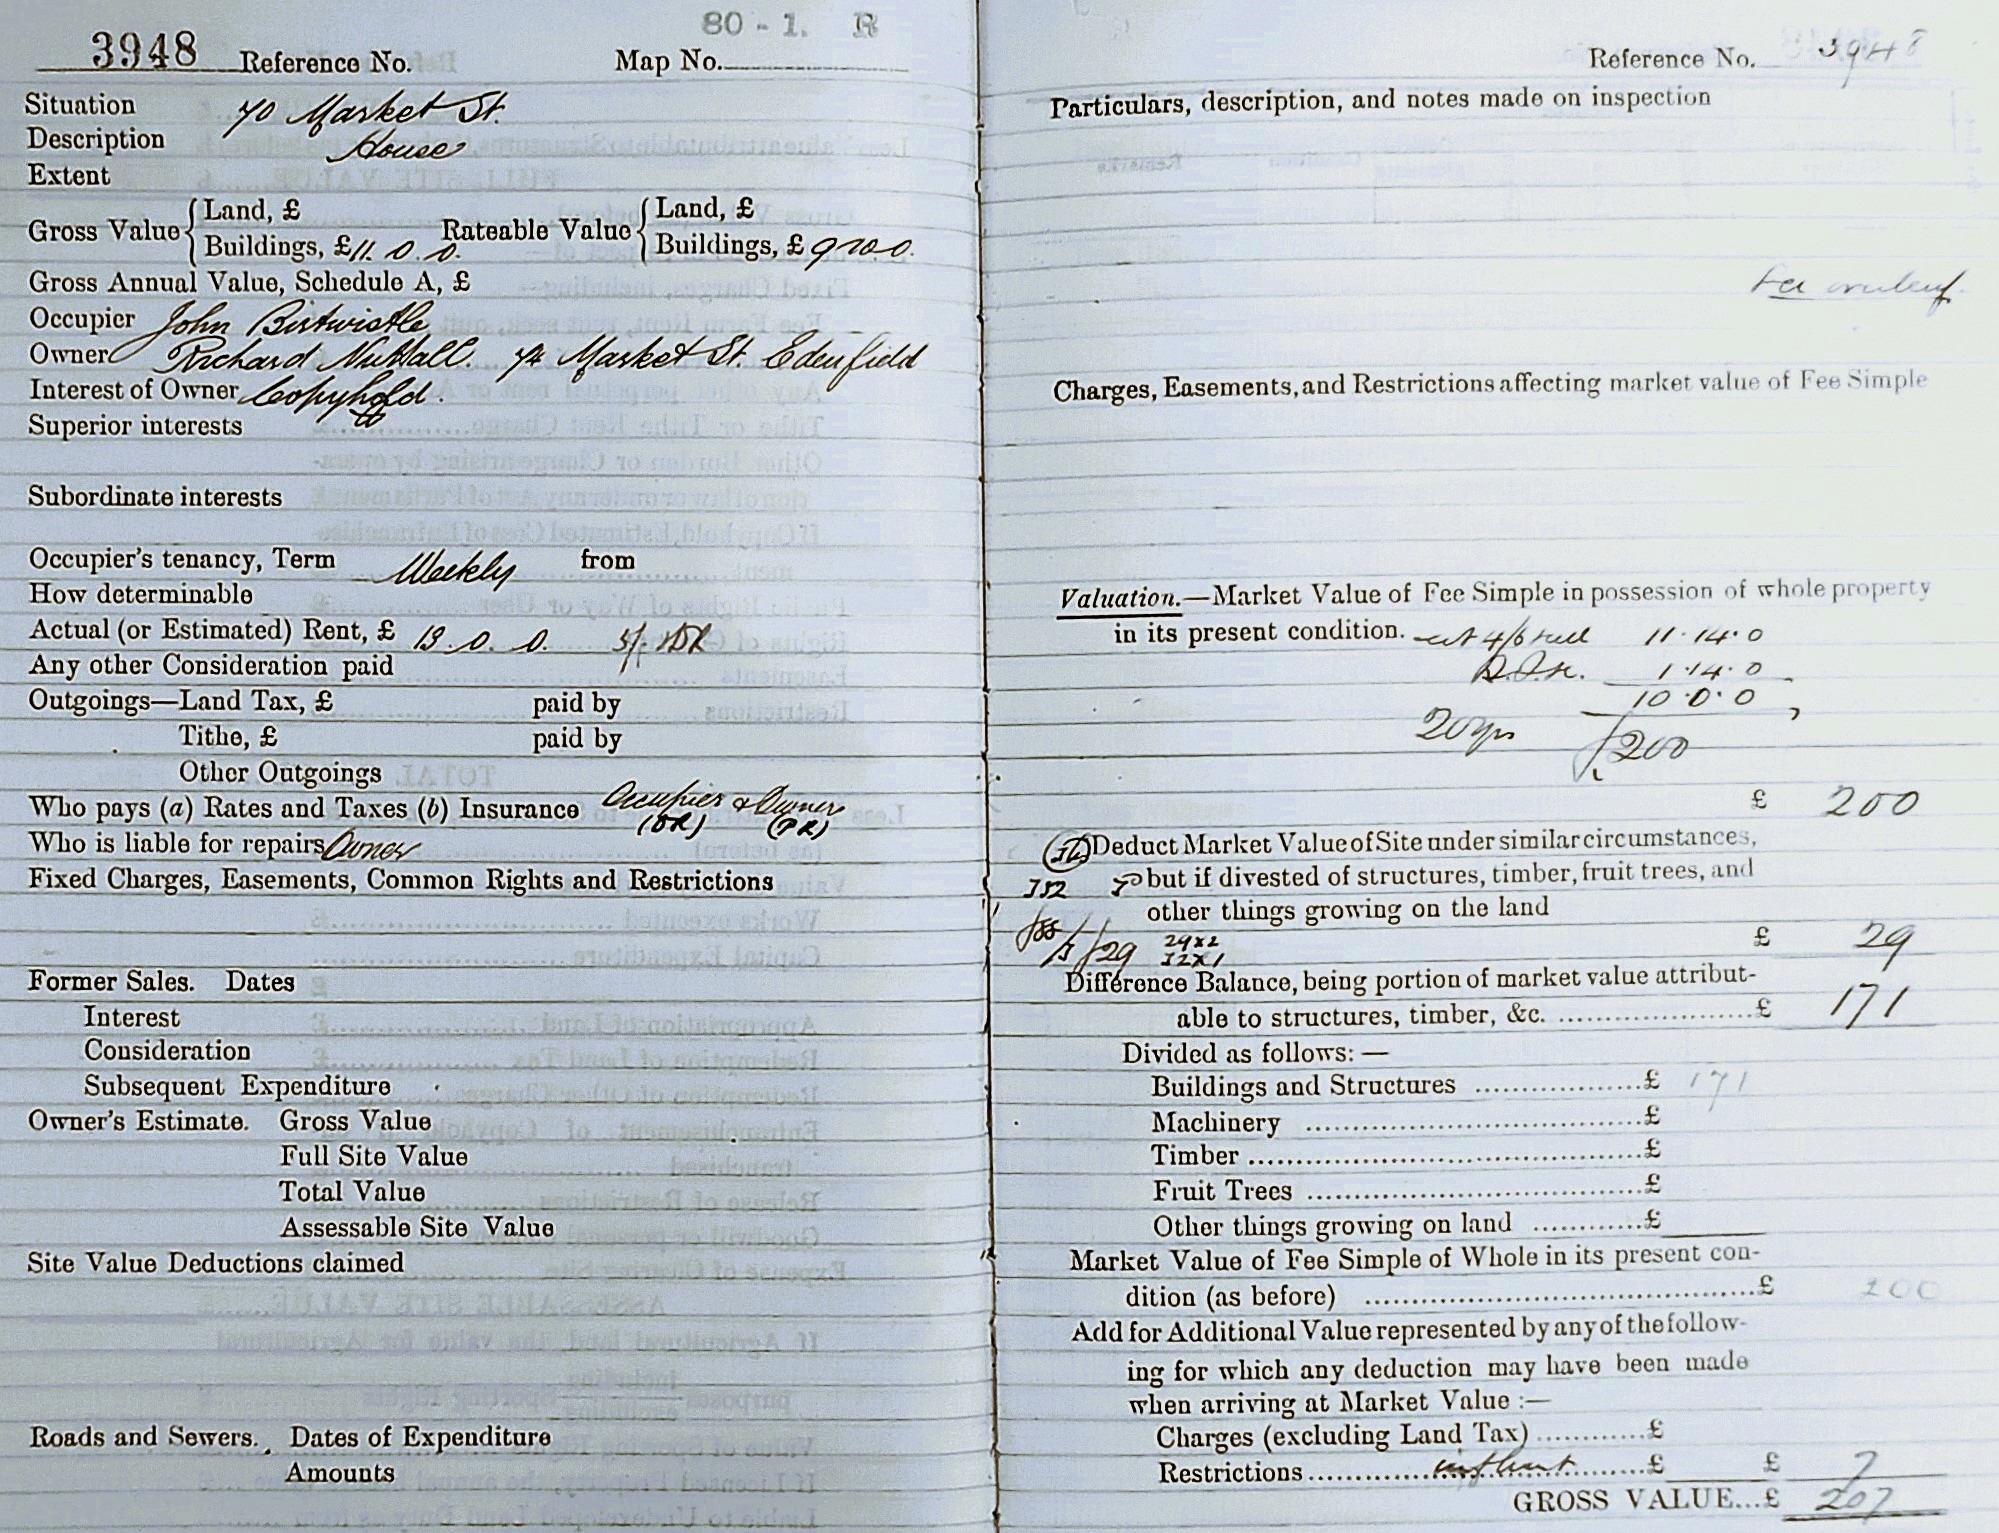 80 - 1. R
3948 Reference No. Map No.
Situation 70 Market St.
Description House
Extent
Gross Value { Land, £
Buildings, £ 11. 0. 0. Rateable Value { Land, £
Buildings, £ 9 0.
Gross Annual Value, Schedule A, £
Occupier John Birtwistle
Owner Richard Nuttall. 74 Market St. Edenfield
Interest of Owner Copyhold.
Superior interests
Subordinate interests
Occupier's tenancy, Term Weekly from
How determinable
Actual (or Estimated) Rent, £ 13. 0. 0. 5/-
Any other Consideration paid
Outgoings—Land Tax, £ paid by
Tithe, £ paid by
Other Outgoings
Who pays (a) Rates and Taxes (b) Insurance Occupier & Owner
(OR) (PR)
Who is liable for repairs Owner
Fixed Charges, Easements, Common Rights and Restrictions
Former Sales. Dates
Interest
Consideration
Subsequent Expenditure
Owner's Estimate. Gross Value
Full Site Value
Total Value
Assessable Site Value
Site Value Deductions claimed
Roads and Sewers. Dates of Expenditure
Amounts
Reference No. 3948
Particulars, description, and notes made on inspection
Charges, Easements, and Restrictions affecting market value of Fee Simple
Valuation.—Market Value of Fee Simple in possession of whole property
in its present condition. at 4/6 11.14.0
1.14.0
10.0.0
20 yrs £200
£ 200
Deduct Market Value of Site under similar circumstances,
but if divested of structures, timber, fruit trees, and
other things growing on the land
29 29x2
£ 29
12x1
Difference Balance, being portion of market value attribut-
able to structures, timber, &c. £ 171
Divided as follows:—
Buildings and Structures £ 171
Machinery £
Timber £
Fruit Trees £
Other things growing on land £
Market Value of Fee Simple of Whole in its present con-
dition (as before) £ 200
Add for Additional Value represented by any of the follow-
ing for which any deduction may have been made
when arriving at Market Value :—
Charges (excluding Land Tax) £
Restrictions £ £ 7
GROSS VALUE...£ 207